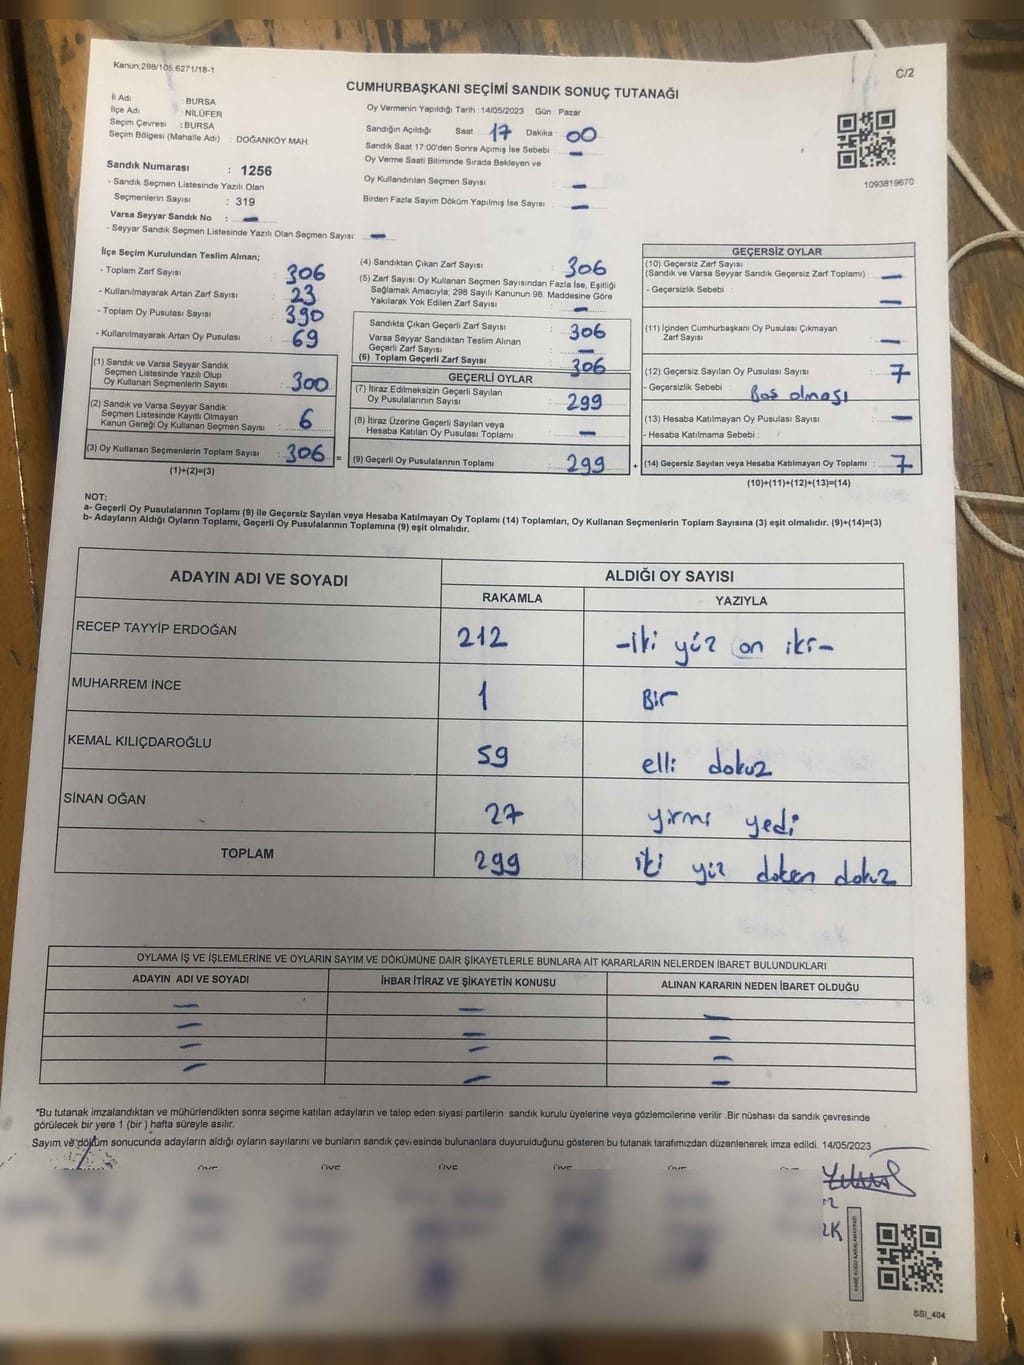 Kanun;298/105,6271/18-1
C/2
CUMHURBAŞKANI SEÇİMİ SANDIK SONUÇ TUTANAĞI
İl Adı : BURSA
İlçe Adı : NİLÜFER
Seçim Çevresi : BURSA
Seçim Bölgesi (Mahalle Adı) : DOĞANKÖY MAH.
Sandık Numarası : 1256
- Sandık Seçmen Listesinde Yazılı Olan
Seçmenlerin Sayısı : 319
Varsa Seyyar Sandık No : —
- Seyyar Sandık Seçmen Listesinde Yazılı Olan Seçmen Sayısı: —
Oy Vermenin Yapıldığı Tarih : 14/05/2023 Gün : Pazar
Sandığın Açıldığı Saat : 17 Dakika : 00
Sandık Saat 17:00'den Sonra Açımış İse Sebebi : —
Oy Verme Saati Bitiminde Sırada Bekleyen ve
Oy Kullandırılan Seçmen Sayısı : —
Birden Fazla Sayım Döküm Yapılmış İse Sayısı : —
1093819670
İlçe Seçim Kurulundan Teslim Alınan;
- Toplam Zarf Sayısı : 306
- Kullanılmayarak Artan Zarf Sayısı : 23
- Toplam Oy Pusulası Sayısı : 390
- Kullanılmayarak Artan Oy Pusulası : 69
(1) Sandık ve Varsa Seyyar Sandık
Seçmen Listesinde Yazılı Olup
Oy Kullanan Seçmenlerin Sayısı : 300
(2) Sandık ve Varsa Seyyar Sandık
Seçmen Listesinde Kayıtlı Olmayan
Kanun Gereği Oy Kullanan Seçmen Sayısı : 6
(3) Oy Kullanan Seçmenlerin Toplam Sayısı : 306 =
(1)+(2)=(3)
(4) Sandıktan Çıkan Zarf Sayısı : 306
(5) Zarf Sayısı Oy Kullanan Seçmen Sayısından Fazla İse, Eşitliği
Sağlamak Amacıyla; 298 Sayılı Kanunun 98. Maddesine Göre
Yakılarak Yok Edilen Zarf Sayısı : —
Sandıkta Çıkan Geçerli Zarf Sayısı : 306
Varsa Seyyar Sandıktan Teslim Alınan
Geçerli Zarf Sayısı : —
(6) Toplam Geçerli Zarf Sayısı : 306
GEÇERLİ OYLAR
(7) İtiraz Edilmeksizin Geçerli Sayılan
Oy Pusulalarının Sayısı : 299
(8) İtiraz Üzerine Geçerli Sayılan veya
Hesaba Katılan Oy Pusulası Toplamı : —
(9) Geçerli Oy Pusulalarının Toplamı : 299 +
GEÇERSİZ OYLAR
(10) Geçersiz Zarf Sayısı
(Sandık ve Varsa Seyyar Sandık Geçersiz Zarf Toplamı) : —
- Geçersizlik Sebebi : —
(11) İçinden Cumhurbaşkanı Oy Pusulası Çıkmayan
Zarf Sayısı : —
(12) Geçersiz Sayılan Oy Pusulası Sayısı : 7
- Geçersizlik Sebebi : Boş olması
(13) Hesaba Katılmayan Oy Pusulası Sayısı : —
- Hesaba Katılmama Sebebi :
(14) Geçersiz Sayılan veya Hesaba Katılmayan Oy Toplamı : 7
(10)+(11)+(12)+(13)=(14)
NOT:
a- Geçerli Oy Pusulalarının Toplamı (9) ile Geçersiz Sayılan veya Hesaba Katılmayan Oy Toplamı (14) Toplamları, Oy Kullanan Seçmenlerin Toplam Sayısına (3) eşit olmalıdır. (9)+(14)=(3)
b- Adayların Aldığı Oyların Toplamı, Geçerli Oy Pusulalarının Toplamına (9) eşit olmalıdır.
ADAYIN ADI VE SOYADI ALDIĞI OY SAYISI
RAKAMLA YAZIYLA
RECEP TAYYİP ERDOĞAN 212 -iki yüz on iki-
MUHARREM İNCE 1 Bir
KEMAL KILIÇDAROĞLU 59 elli dokuz
SİNAN OĞAN 27 yirmi yedi
TOPLAM 299 iki yüz doksen dokuz
OYLAMA İŞ VE İŞLEMLERİNE VE OYLARIN SAYIM VE DÖKÜMÜNE DAİR ŞİKAYETLERLE BUNLARA AİT KARARLARIN NELERDEN İBARET BULUNDUKLARI
ADAYIN ADI VE SOYADI İHBAR İTİRAZ VE ŞİKAYETİN KONUSU ALINAN KARARIN NEDEN İBARET OLDUĞU
— — —
— — —
— — —
— — —
*Bu tutanak imzalandıktan ve mühürlendikten sonra seçime katılan adayların ve talep eden siyasi partilerin sandık kurulu üyelerine veya gözlemcilerine verilir .Bir nüshası da sandık çevresinde
görülecek bir yere 1 (bir ) hafta süreyle asılır.
Sayım ve döküm sonucunda adayların aldığı oyların sayılarını ve bunların sandık çevresinde bulunanlara duyurulduğunu gösteren bu tutanak tarafımızdan düzenlenerek imza edildi. 14/05/2023
ÜYE ÜYE ÜYE ÜYE ÜYE ÜYE
SSI_404